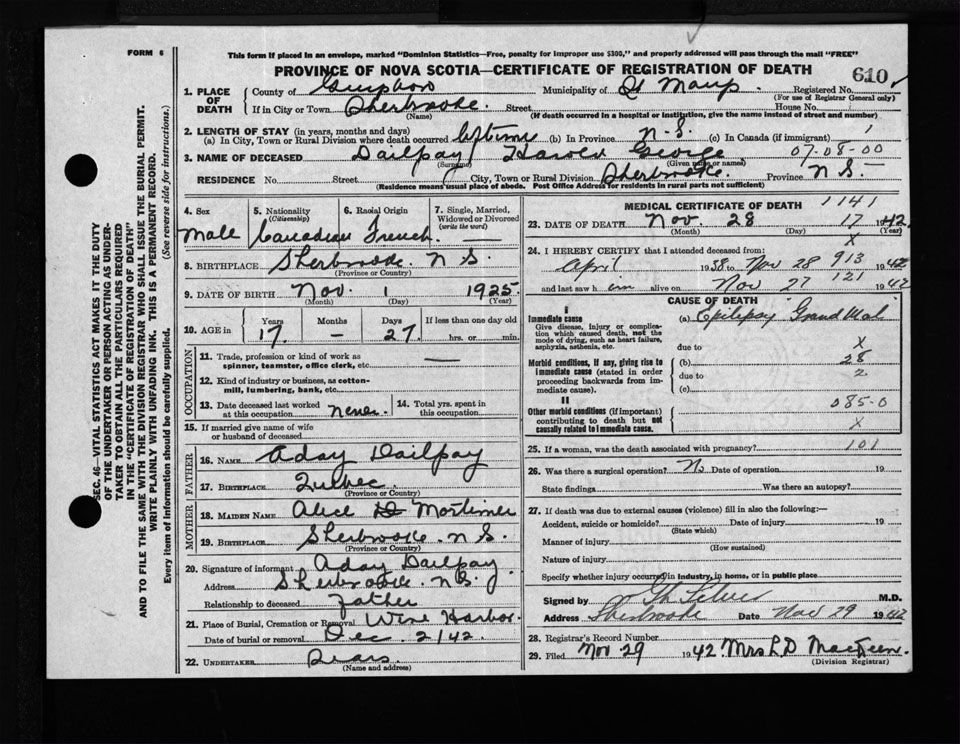 FORM 6
This form if placed in an envelope, marked "Dominion Statistics—Free, penalty for improper use $300," and properly addressed will pass through the mail "FREE"
PROVINCE OF NOVA SCOTIA—CERTIFICATE OF REGISTRATION OF DEATH
610
1. PLACE OF DEATH
County of Municipality of St Marys. Registered No.
(For use of Registrar General only)
If in City or Town Sherbrooke. Street House No.
(Name) (If death occurred in a hospital or institution, give the name instead of street and number)
2. LENGTH OF STAY (in years, months and days)
(a) In City, Town or Rural Division where death occurred lifetime (b) In Province N-S. (c) In Canada (if immigrant) 1
3. NAME OF DECEASED Dailpay Harold George 07-08-00
(Surname) (Given name or names)
RESIDENCE No. Street City, Town or Rural Division Sherbrooke. Province N S.
(Residence means usual place of abode. Post Office Address for residents in rural parts not sufficient)
4. Sex Male
5. Nationality (Citizenship) Canadian
6. Racial Origin French.
7. Single, Married, Widowed or Divorced (write the word) —
8. BIRTHPLACE Sherbrooke. N S.
(Province or Country)
9. DATE OF BIRTH Nov. 1 1925
(Month) (Day) (Year)
10. AGE in Years 17. Months – Days 27. If less than one day old hrs. or min.
OCCUPATION
11. Trade, profession or kind of work as spinner, teamster, office clerk, etc. —
12. Kind of industry or business, as cotton-mill, lumbering, bank, etc.
13. Date deceased last worked at this occupation never
14. Total yrs. spent in this occupation.
15. If married give name of wife or husband of deceased
FATHER
16. NAME Aday Dailpay
17. BIRTHPLACE Quebec.
(Province or Country)
MOTHER
18. MAIDEN NAME Alice Mortimer
19. BIRTHPLACE Sherbrooke. N S.
(Province or Country)
20. Signature of informant Aday Dailpay.
Address Sherbrooke. N S.
Relationship to deceased Father
21. Place of Burial, Cremation or Removal Wine Harbor.
Date of burial or removal Dec. 2/42.
22. UNDERTAKER
(Name and address)
MEDICAL CERTIFICATE OF DEATH 1141
23. DATE OF DEATH Nov. 28 17 1942
(Month) (Day) (Year)
x
24. I HEREBY CERTIFY that I attended deceased from:
April 1938 to Nov 28 913 1942
and last saw him alive on Nov 27 121 1942
CAUSE OF DEATH
I
Immediate cause
Give disease, injury or complication which caused death, not the mode of dying, such as heart failure, asphyxia, asthenia, etc.
(a) Epilepsy Grand Mal
due to x
Morbid conditions, if any, giving rise to immediate cause (stated in order proceeding backwards from immediate cause).
(b) 28
due to 2
(c)
II
Other morbid conditions (if important) contributing to death but not causally related to immediate cause.
085-0
x
25. If a woman, was the death associated with pregnancy? 101
26. Was there a surgical operation? No Date of operation 19
State findings Was there an autopsy?
27. If death was due to external causes (violence) fill in also the following:—
Accident, suicide or homicide? Date of injury 19
Manner of injury
(How sustained)
Nature of injury
Specify whether injury occurred in industry, in home, or in public place
Signed by M.D.
Address Sherbrooke Date Nov 29 1942
28. Registrar's Record Number
29. Filed Nov. 29 1942 Mrs. L D MacKeen
(Division Registrar)
SEC. 46—VITAL STATISTICS ACT MAKES IT THE DUTY
OF THE UNDERTAKER OR PERSON ACTING AS UNDER-
TAKER TO OBTAIN ALL THE PARTICULARS REQUIRED
IN THE "CERTIFICATE OF REGISTRATION OF DEATH"
AND TO FILE THE SAME WITH THE DIVISION REGISTRAR WHO SHALL ISSUE THE BURIAL PERMIT.
WRITE PLAINLY WITH UNFADING INK. THIS IS A PERMANENT RECORD.
Every item of information should be carefully supplied. (See reverse side for instructions.)